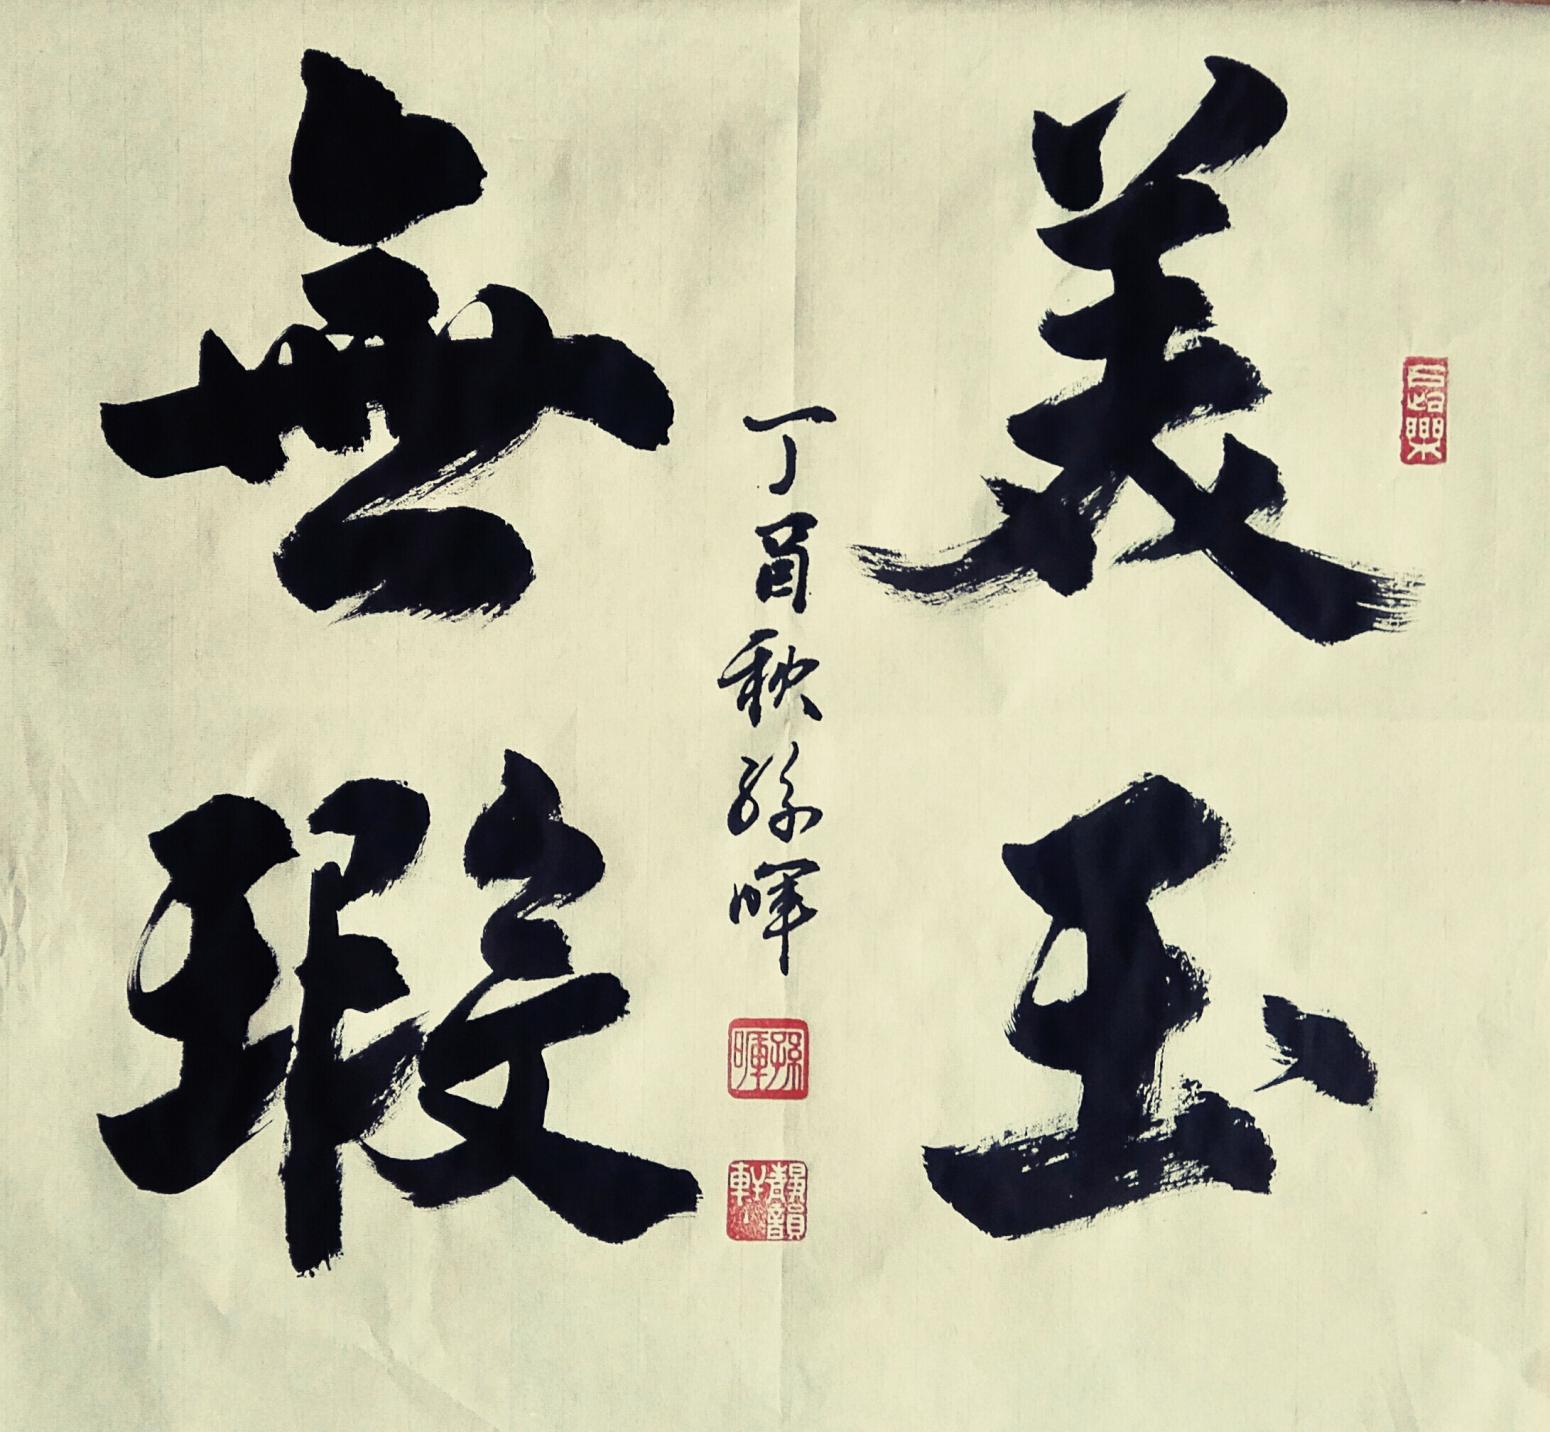 美玉
無瑕
丁酉秋孫暉
孫暉